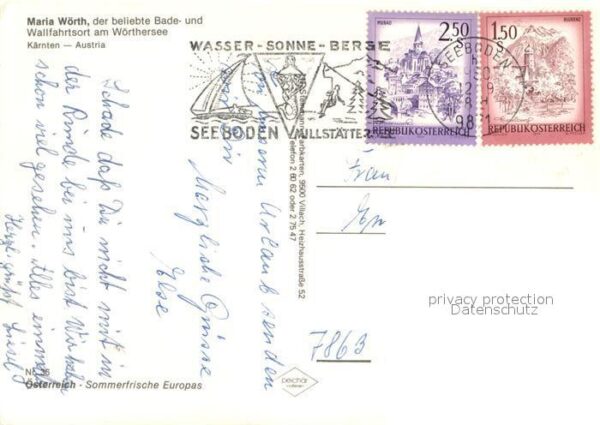 Maria Wörth, der beliebte Bade- und
Wallfahrtsort am Wörthersee
Kärnten — Austria
WASSER - SONNE - BERGE
SEEBODEN MILLSTÄTTER
MURAU
2,50
REPUBLIK ÖSTERREICH
1,50
REPUBLIK ÖSTERREICH
SEEBODEN
9871
Schade daß Du nicht mit in
der Runde bei uns bist. Wir haben
schon viel gesehen. Alles einmal
Liesl
unserem Urlaub senden
Herzliche Grüsse
Else
9500 Villach, Heizhausstraße 52
Telefon 2 60 62 oder 2 75 47
Frau
7863
privacy protection
Datenschutz
pechar
Österreich - Sommerfrische Europas